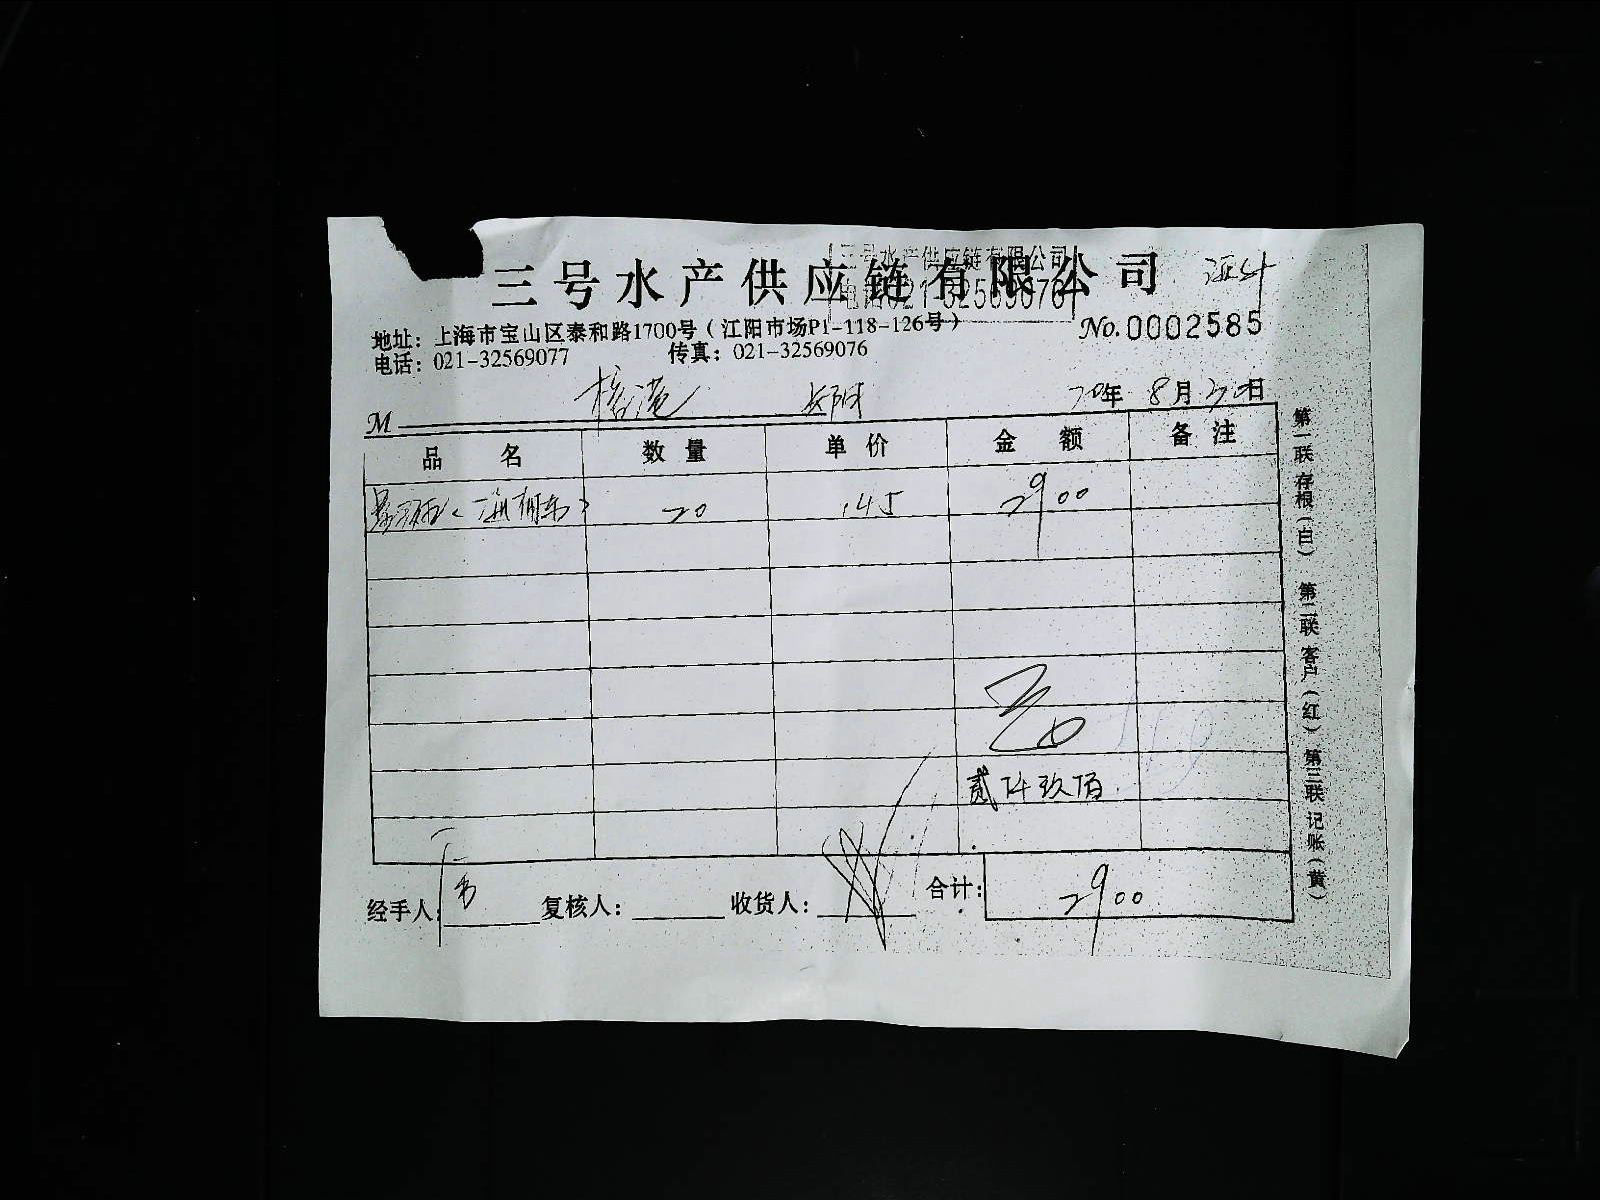 三号水产供应链有限公司
三号水产供应链有限公司
电话021-32569076
地址：上海市宝山区泰和路1700号（江阳市场P1-118-126号）
No.0002585
电话：021-32569077 传真：021-32569076
20年 8月20日
M
品 名 数 量 单 价 金 额 备 注
20 145 2900
贰仟玖佰
经手人： 复核人： 收货人： 合计： 2900
第一联 存根（白） 第二联 客户（红） 第三联 记账（黄）